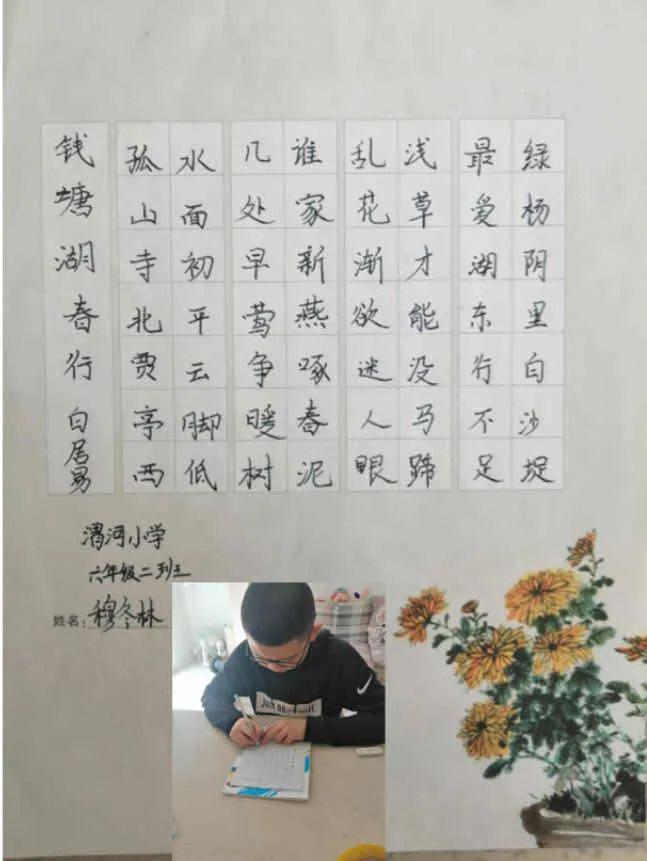 钱塘湖春行
白居易
孤山寺北贾亭西
水面初平云脚低
几处早莺争暖树
谁家新燕啄春泥
乱花渐欲迷人眼
浅草才能没马蹄
最爱湖东行不足
绿杨阴里白沙堤
渭河小学
六年级二班
姓名：穆冬林